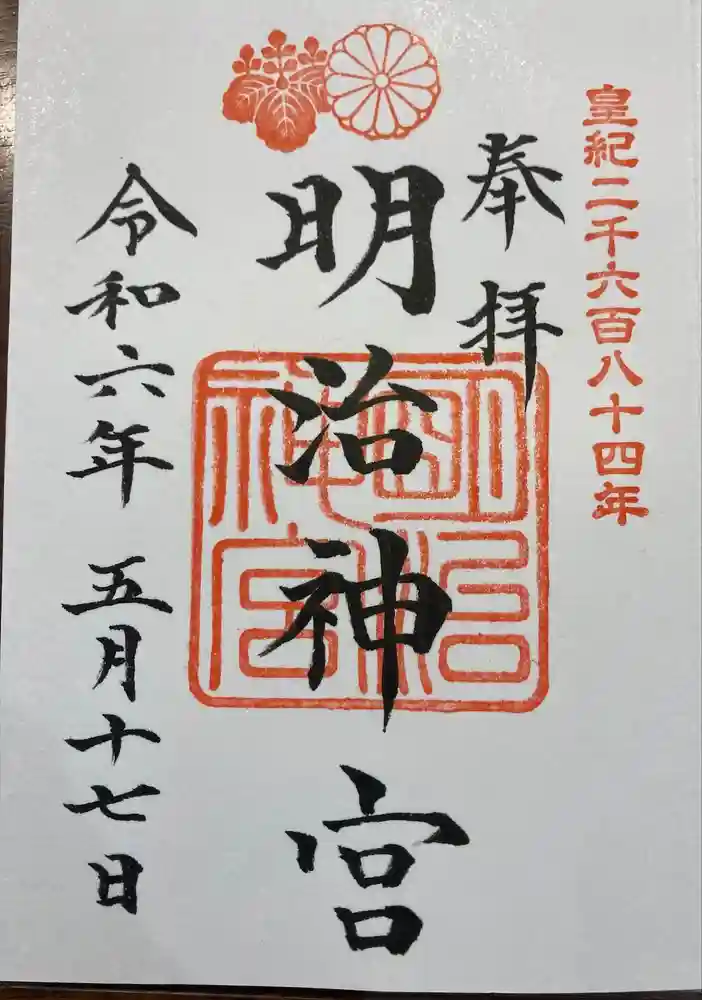 皇紀二千六百八十四年
奉拝
明治神宮
明治神宮
令和六年 五月十七日